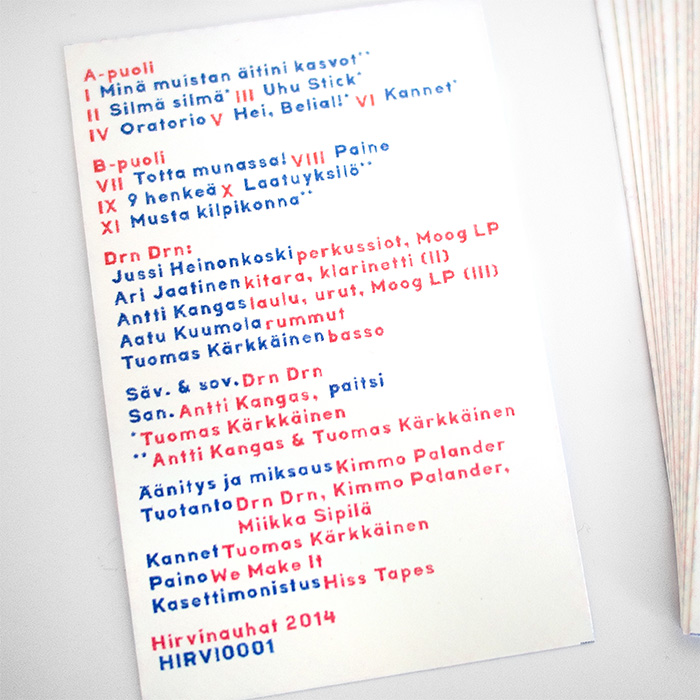 A-puoli
I Minä muistan äitini kasvot**
II Silmä silmä* III Uhu Stick*
IV Oratorio V Hei, Belial!* VI Kannet*
B-puoli
VII Totta munassa! VIII Paine
IX 9 henkeä X Laatuyksilö**
XI Musta kilpikonna**
Drn Drn:
Jussi Heinonkoski perkussiot, Moog LP
Ari Jaatinen kitara, klarinetti (II)
Antti Kangas laulu, urut, Moog LP (III)
Aatu Kuumola rummut
Tuomas Kärkkäinen basso
Säv. & sov. Drn Drn
San. Antti Kangas, paitsi
*Tuomas Kärkkäinen
**Antti Kangas & Tuomas Kärkkäinen
Äänitys ja miksaus Kimmo Palander
Tuotanto Drn Drn, Kimmo Palander,
Miikka Sipilä
Kannet Tuomas Kärkkäinen
Paino We Make It
Kasettimonistus Hiss Tapes
Hirvinauhat 2014
HIRVI0001